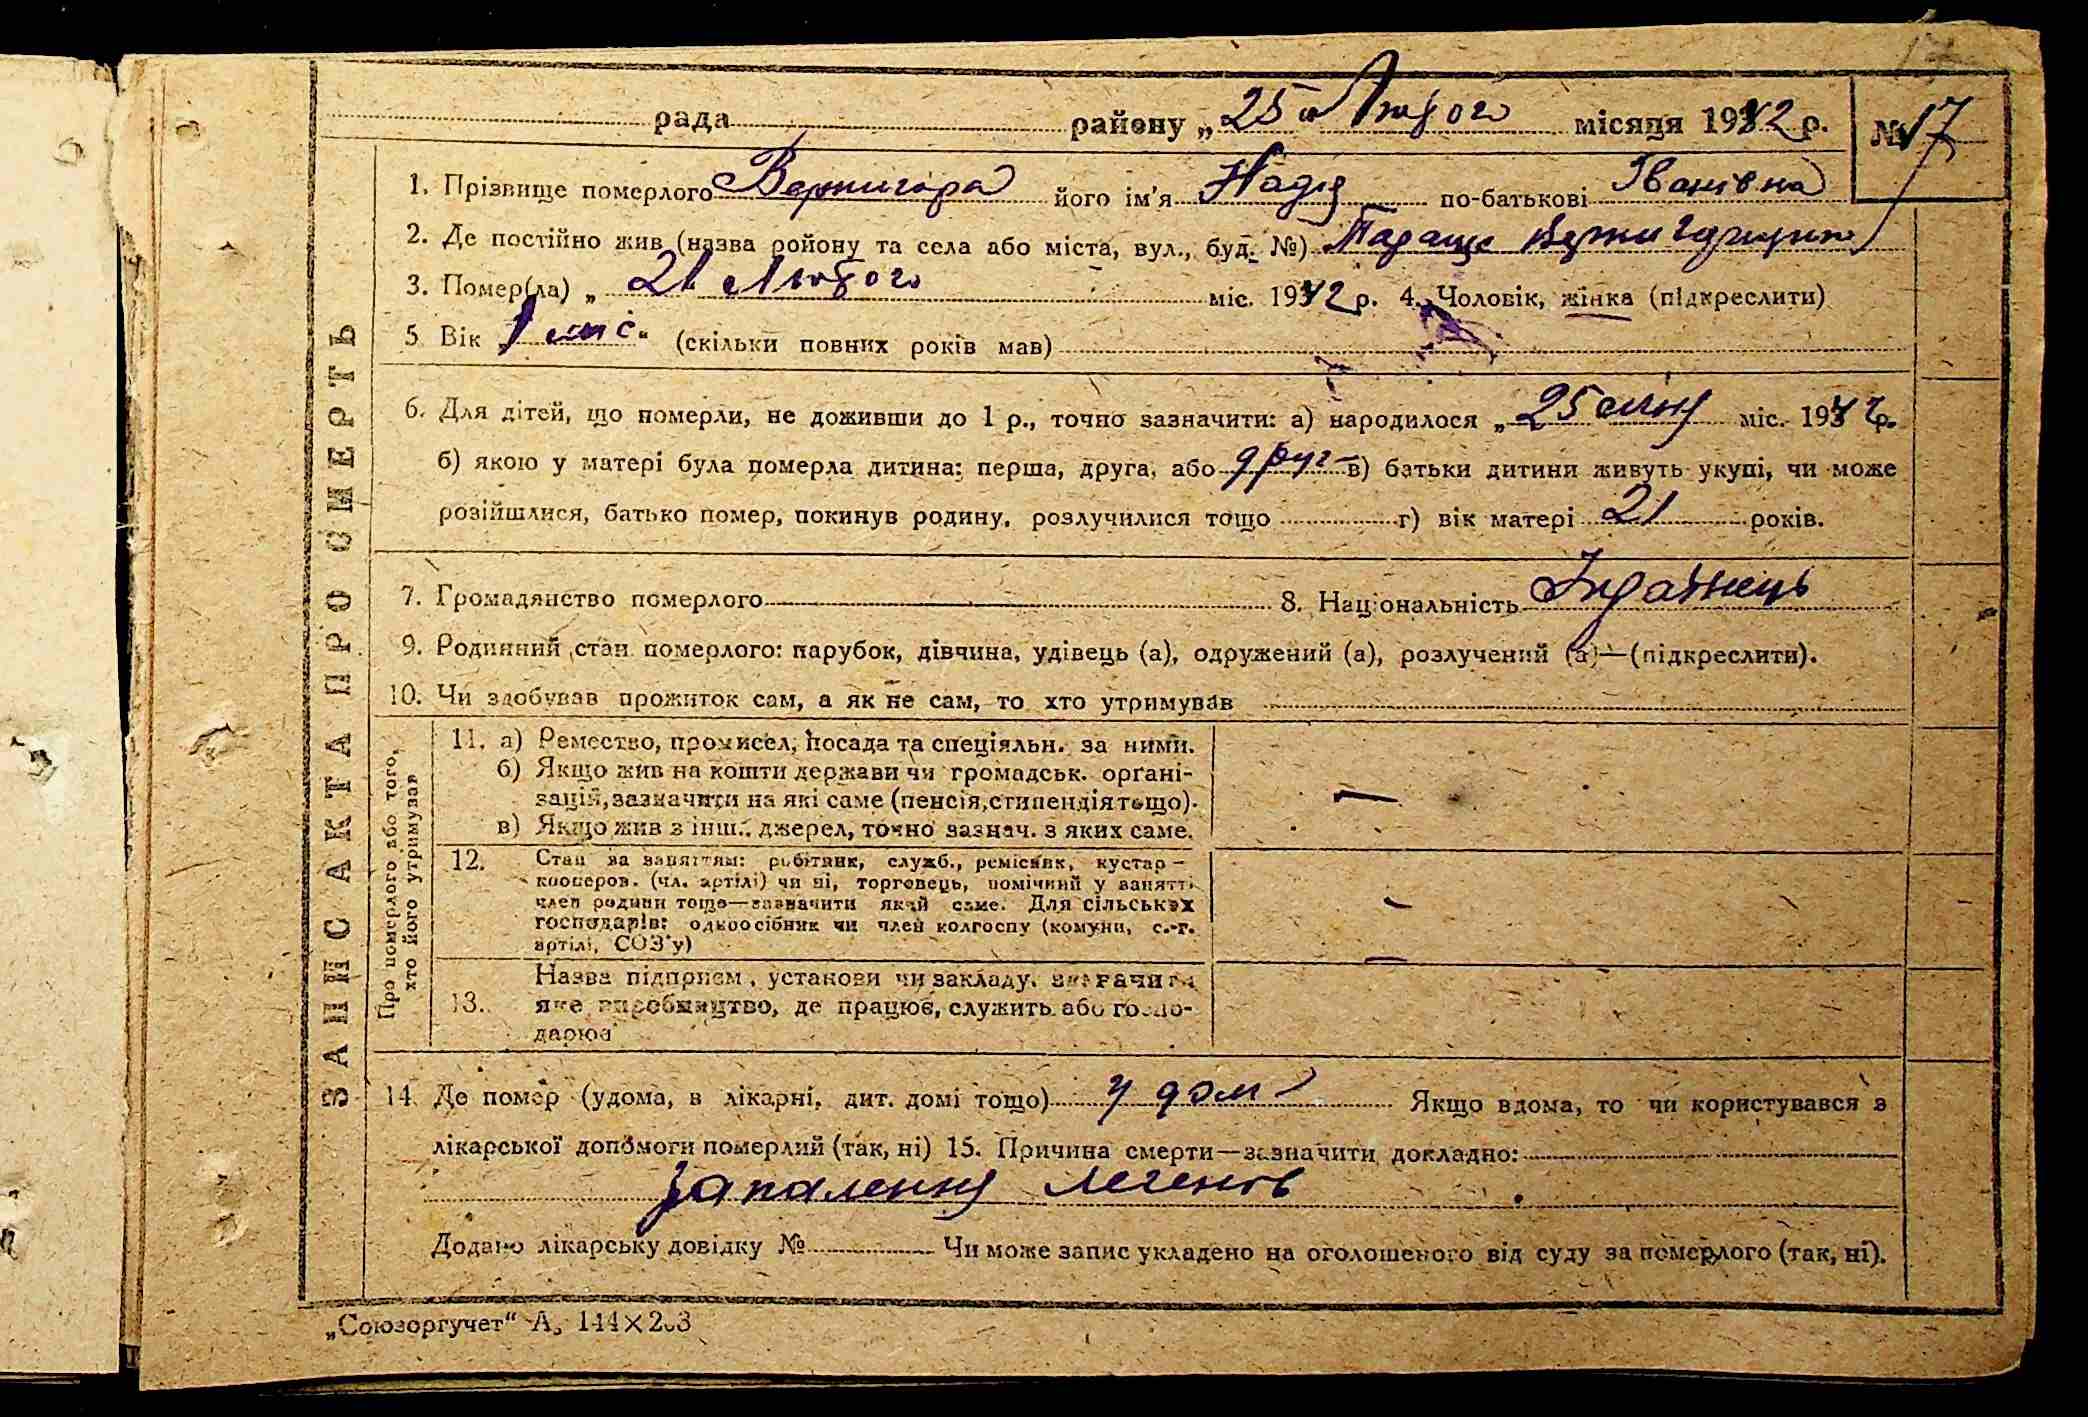 рада районy „25" Лютого місяця 1942 р. № 17
ЗАПИС АКТА ПРО СМЕРТЬ
1. Прізвище померлого Вернигора його ім'я Надія по-батькові Іванівна
2. Де постійно жив (назва ройону та села або міста, вул., буд. №)
3. Помер(ла) „ 21 Лютого міс. 1942 р. 4. Чоловік, жінка (підкреслити)
5 Вік „1 міс" (скільки повних років мав)
6. Для дітей, що померли, не доживши до 1 р., точно зазначити: а) народилося „25 міс. 1942 р.
б) якою у матері була померла дитина: перша, друга, або друг в) батьки дитини живуть укупі, чи може
розійшлися, батько помер, покинув родину, розлучилися тощо г) вік матері 21 років.
7. Громадянство померлого 8. Національність Українець
9. Родинний стан померлого: парубок, дівчина, удівець (а), одружений (а), розлучений (а)—(підкреслити).
10. Чи здобував прожиток сам, а як не сам, то хто утримував
Про померлого або того, хто його утримував
11. а) Ремество, промисел, посада та спеціяльн. за ними.
б) Якщо жив на кошти держави чи громадськ. органі-
зацій, зазначити на які саме (пенсія, стипендія тощо).
в) Якщо жив з інш. джерел, точно зазнач. з яких саме.
12. Стан за заняттям: робітник, служб., ремісник, кустар –
кооперов. (чл. артілі) чи ні, торговець, помічний у занятті
член родини тощо—зазначити який саме. Для сільських
господарів: одноосібник чи член колгоспу (комуни, с.-г.
артілі, СОЗ'у)
13. Назва підприєм., установи чи закладу, зазначити
яке виробництво, де працює, служить або госпо-
дарює
14. Де помер (удома, в лікарні, дит. домі тощо) у дом Якщо вдома, то чи користувався з
лікарської допомоги померлий (так, ні) 15. Причина смерти—зазначити докладно:
запалення легенів
Додано лікарську довідку № Чи може запис укладено на оголошеного від суду за померлого (так, ні).
„Союзоргучет" А₅ 144×203